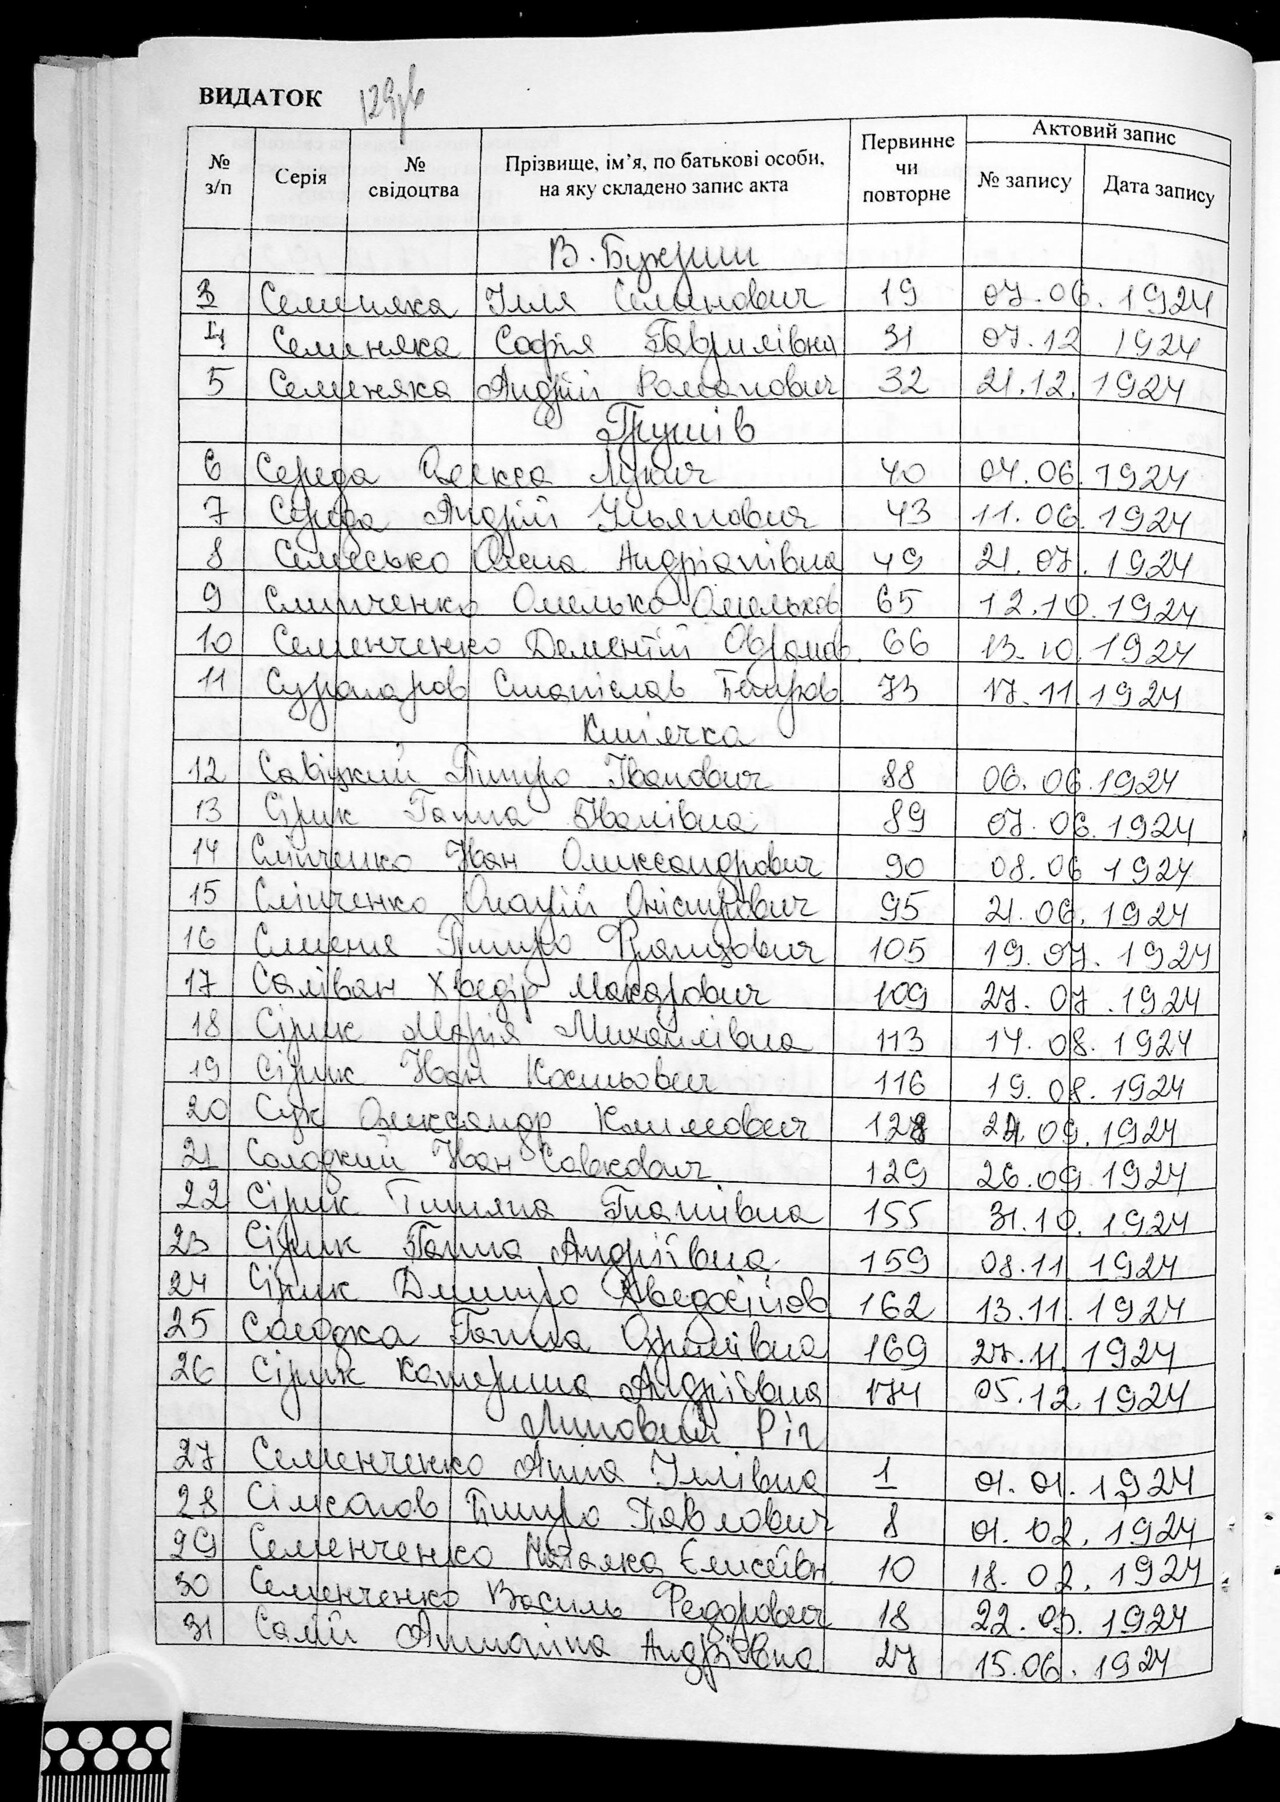 ВИДАТОК 129зв
Актовий запис
№ з/п Серія № свідоцтва Прізвище, ім’я, по батькові особи, на яку складено запис акта Первинне чи повторне № запису Дата запису
В. Букрин
3 Семеняка Ілля Семенович 19 07.06.1924
4 Семеняка Софія Гаврилівна 31 07.12 1924
5 Семеняка Андрій Романович 32 21.12.1924
Грушів
6 Середа Олекса Лукич 40 04.06.1924
7 Середа Андрій Ульянович 43 11.06.1924
8 Семесько Олена Андріанівна 49 21.07.1924
9 Слипченко Омелько Омельков 65 12.10.1924
10 Семенченко Дементій Оврамов. 66 13.10.1924
11 Станіслав Петров 73 17.11.1924
Кип'ячка
12 Савіцкий Петро Іванович 88 06.06.1924
13 Сірик Ганна 89 07.06.1924
14 Сліпченко Іван Олександрович 90 08.06 1924
15 Сліпченко Оністрович 95 21.06.1924
16 Петро Францович 105 19.07.1924
17 Саліван Хведір Макарович 109 27.07.1924
18 Сірик Марія Михайлівна 113 14.08.1924
19 Сірик Іван Костьович 116 19.08.1924
20 Сук Олександр Климович 128 24.09.1924
21 Солодкий Іван Савкович 129 26.09.1924
22 Сірик Тетяна Гнатівна 155 31.10.1924
23 Сірик Ганна Андріївна 159 08.11 1924
24 Сірик Дмитро Авдосійов 162 13.11.1924
25 Солодка Ганна 169 27.11.1924
26 Сірик Катерина Андріївна 174 05.12.1924
Липовий Ріг
27 Семенченко Анна Іллівна 1 01.01.1924
28 Сімонов Петро Павлович 8 01.02.1924
29 Семенченко Наталка Єлисеївн. 10 18.02.1924
30 Семенченко Василь Федорович 18 22.03.1924
31 Салій Антоніна Андріївна 27 15.06.1924